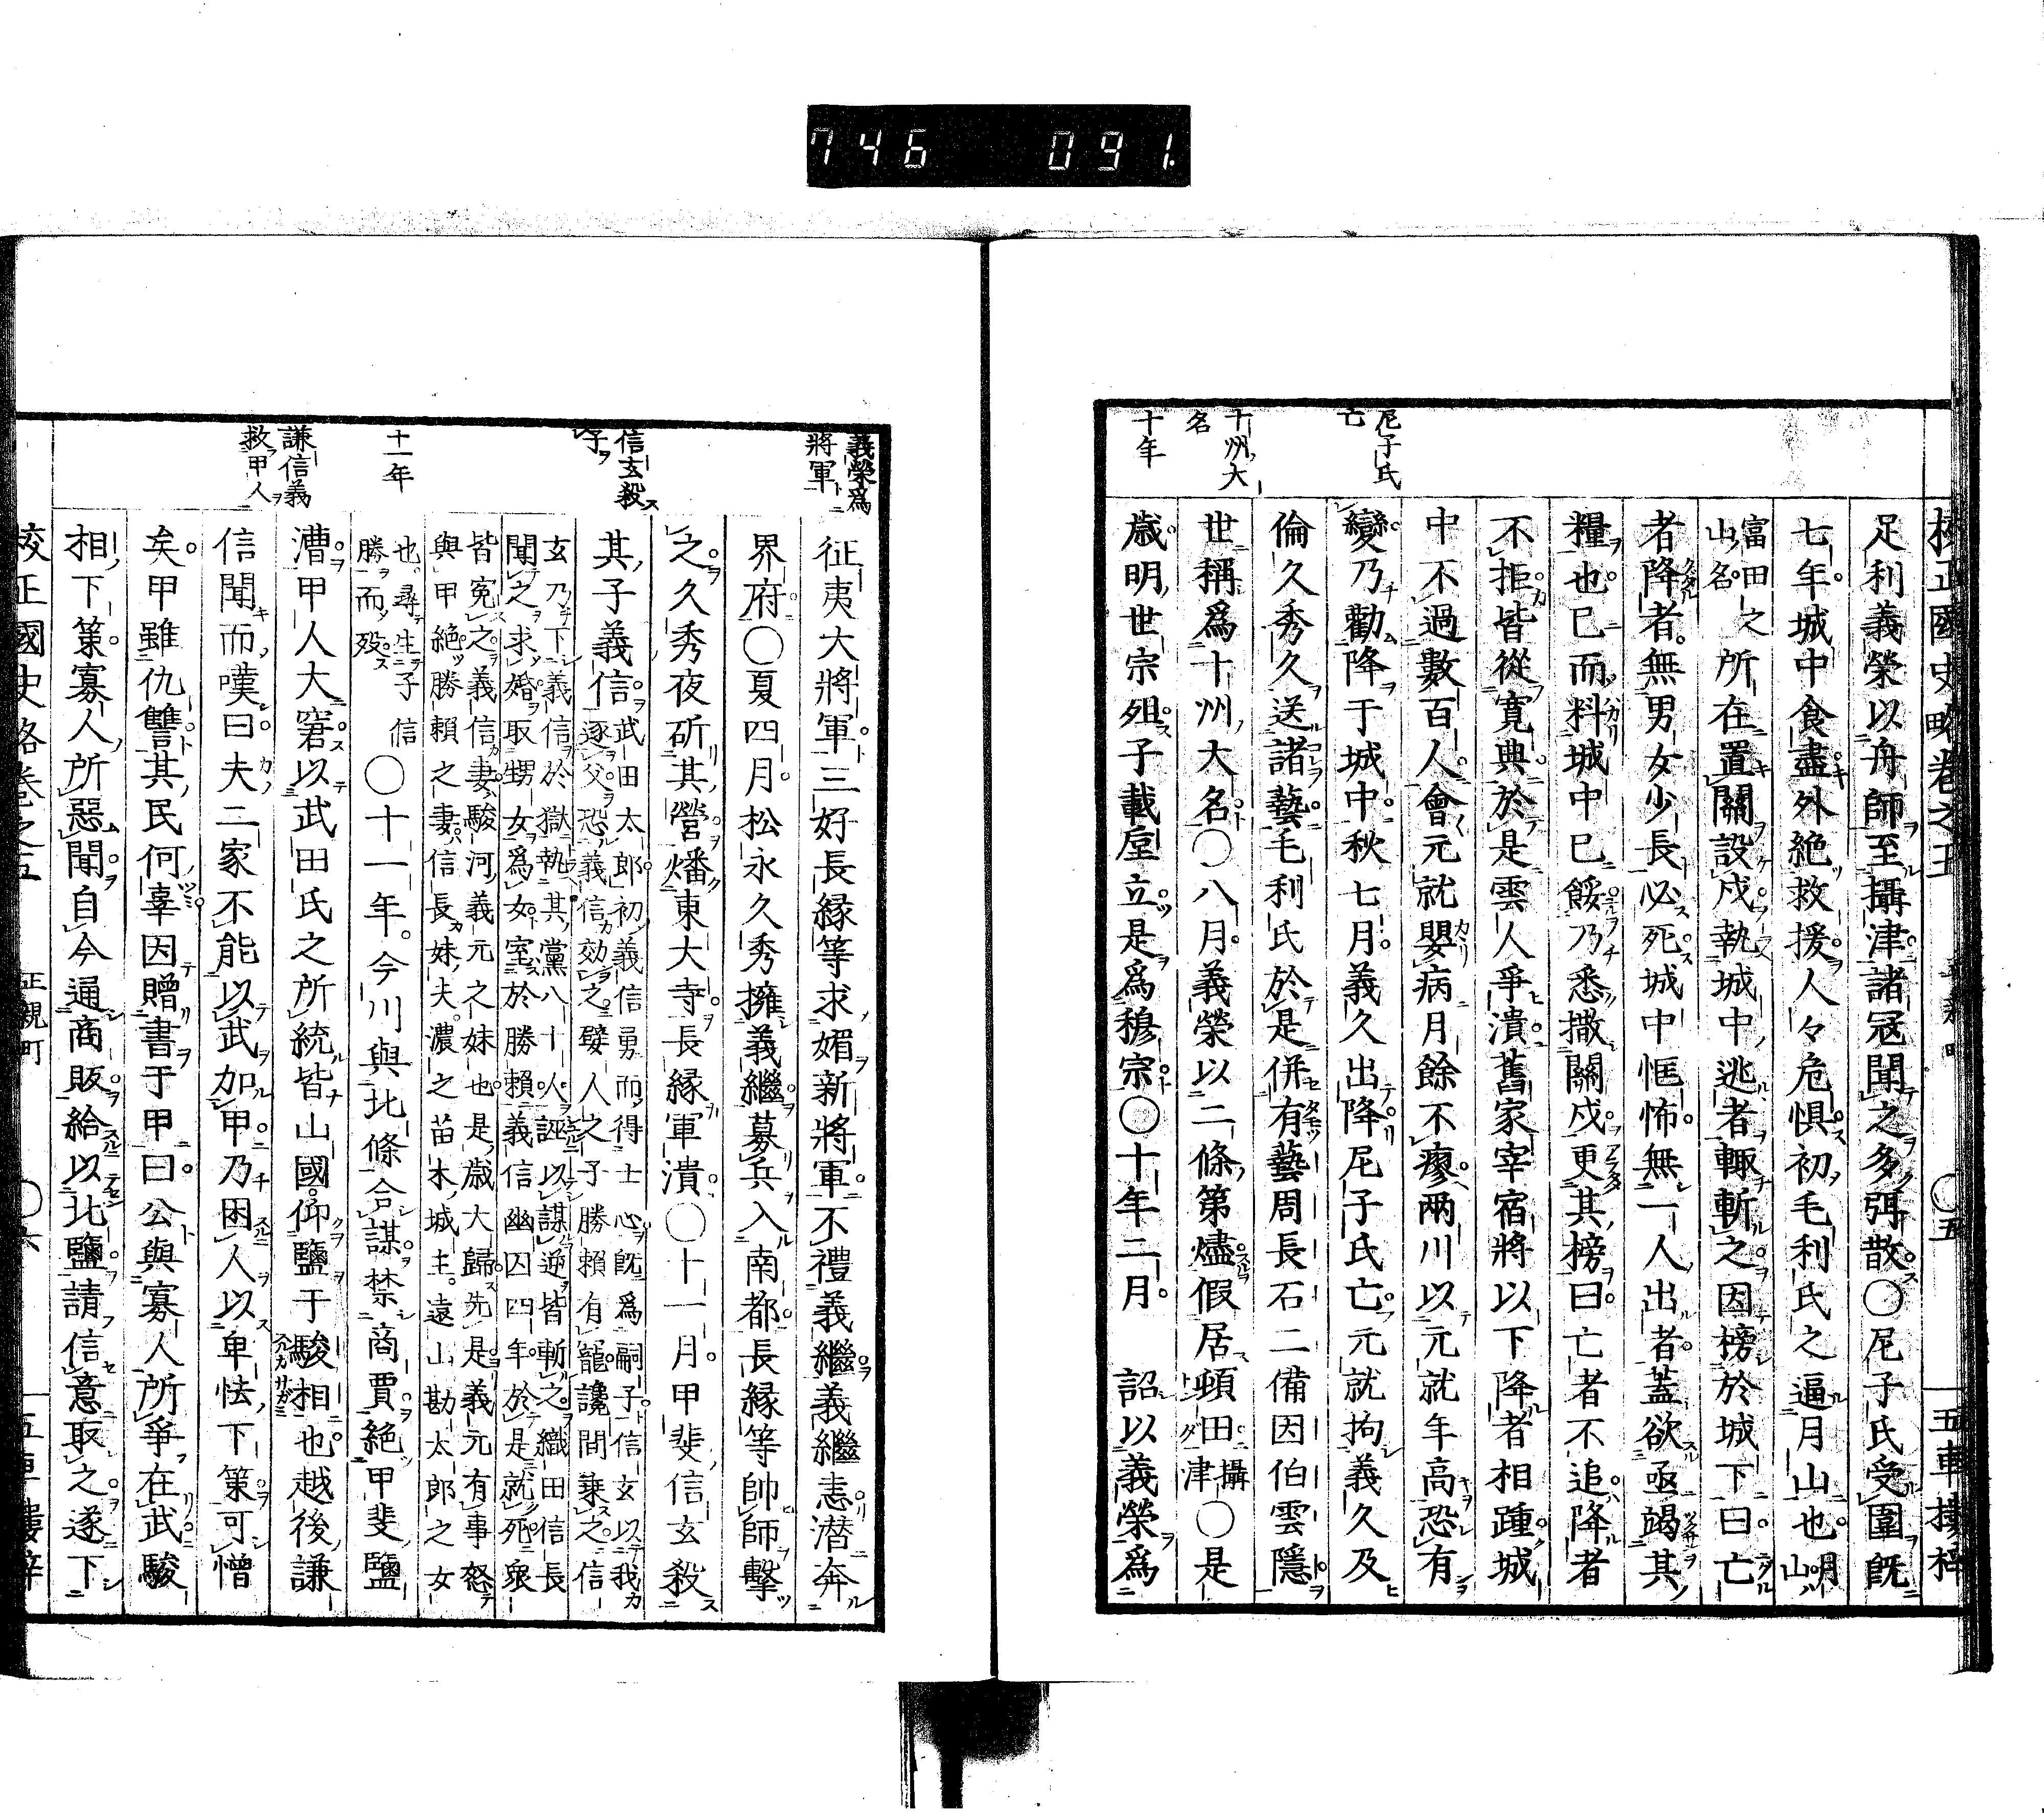 746 091
校正國史略卷之五
○五
五車樓梓
足利義榮以舟師至攝津諸冦聞之多弭散○尼子氏受圍既
七年城中食盡外絶救援人々危惧初毛利氏之逼月山也月山ハ
富田之山名所在置關設戍執城中逃者輙斬之因榜於城下曰亡
者降者無男女少長必死城中恇怖無一人出者蓋欲亟竭其
糧也已而料城中已餒乃悉撒關戍更其榜曰亡者不追降者
不拒皆從寛典於是雲人爭潰舊家宰宿將以下降者相踵城
中不過數百人會元就嬰病月餘不瘳兩川以元就年高恐有
變乃勸降于城中秋七月義久出降尼子氏亡元就拘義久及
倫久秀久送諸藝毛利氏於是併有藝周長石二備因伯雲隱
世稱爲十州大名○八月義榮以二條第燼假居頓田攝津○是
歳明世宗殂子載垕立是爲穆宗○十年二月　詔以義榮爲
尼子氏亡
十州大名
十年
征夷大將軍三好長縁等求媚新將軍不禮義繼義繼恚潜奔
界府○夏四月松永久秀擁義繼募兵入南都長縁等帥師擊
之久秀夜斫其營燔東大寺長縁軍潰○十一月甲斐信玄殺
其子義信武田太郎初義信勇而得士心既爲嗣子信玄以我
逐父恐義信効之嬖人之子勝賴有寵讒間乗之信
玄乃下義信於獄執其黨八十人誣以謀逆皆斬之織田信長
聞之求婚取甥女爲女室於勝賴義信幽囚四年於是就死衆
皆寃之義信妻駿河義元之妹也是歳大歸先是義元有事怒
與甲絶勝賴之妻信長妹夫濃之苗木城主遠山勘太郎之女
也尋生子信
勝而殁○十一年今川與北條合謀禁商賈絶甲斐鹽
漕甲人大窘以武田氏之所統皆山國仰鹽于駿相也越後謙
信聞而嘆曰夫二家不能以武加甲乃困人以卑怯下策可憎
矣甲雖仇讐其民何辜因贈書于甲曰公與寡人所爭在武駿
相下策寡人所惡聞自今通商販給以北鹽請信意取之遂下
義榮爲將軍
信玄殺子
十一年
謙信義救甲人
校正國史略卷之五
正親町
○六
五車樓梓